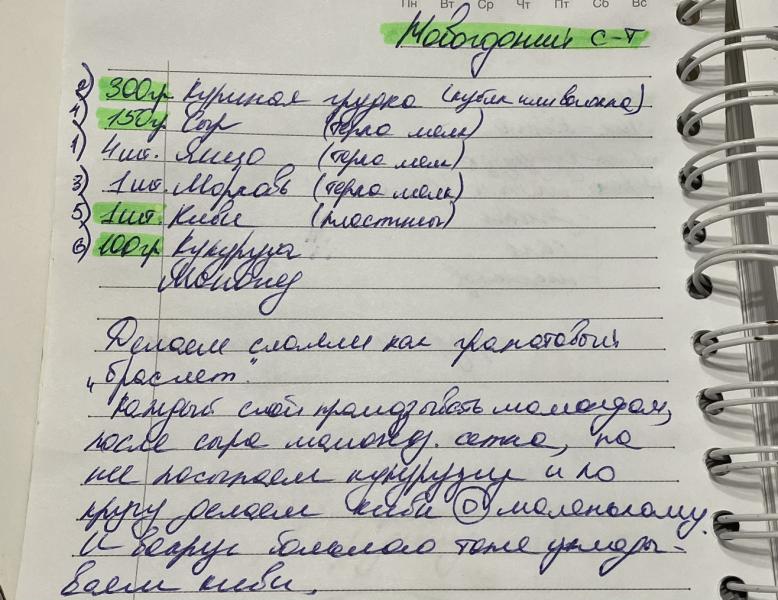 Пн Вт Ср Чт Пт Сб Вс
Новогодний с-т
2) 300гр Куриная грудка (кубик или волокна)
4) 150гр Сыр (терка мелк)
1) 4шт. Яйцо (терка мелк)
3) 1шт. Морковь (терка мелк)
5) 1шт. Киви (пластины)
6) 100гр Кукуруза
Майонез
Делаем слоями как гранатовый
"браслет".
Каждый слой промазывать майонезом,
после сыра майонез. сетка, на
неё посыпаем кукурузу и по
кругу делаем киви О маленькому.
И вокруг большого тоже уклады-
ваем киви.